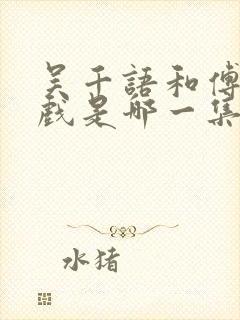 吴千語和傅
戲是那一集
水猪